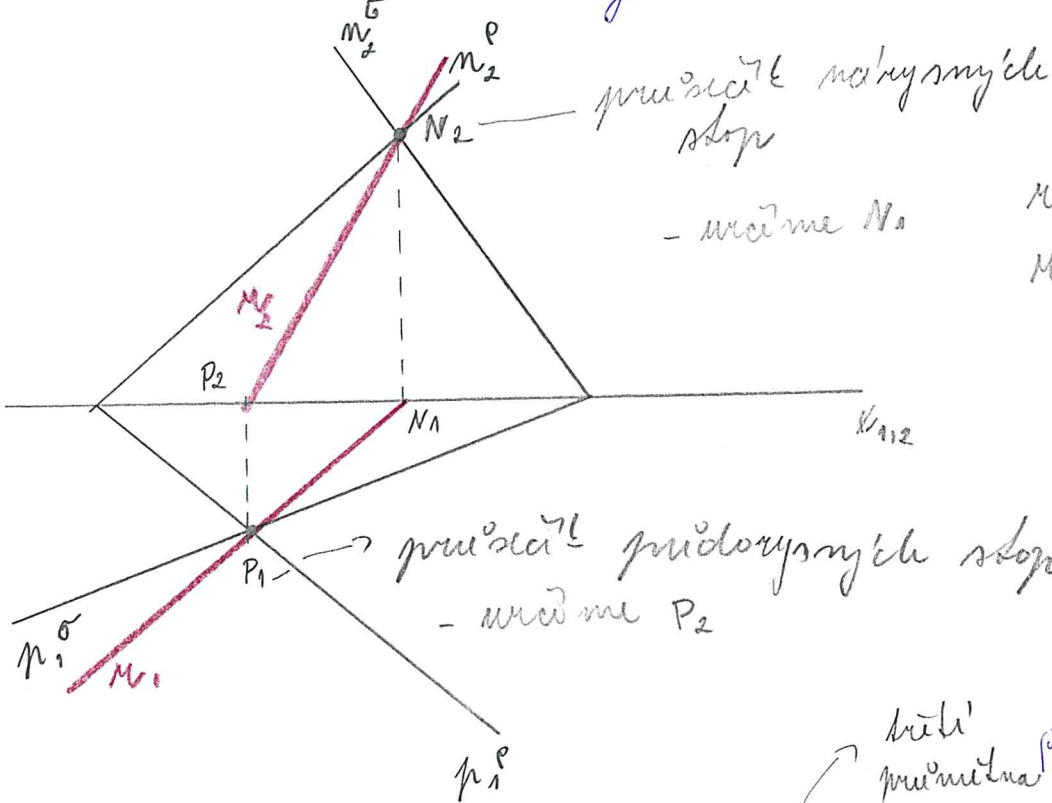 n₂^σ
n₂^ρ
N₂
průsečík nárysných
stop
- určíme N₁
r₂
P₂
N₁
x₁,₂
P₁
průsečík půdorysných stop
- určíme P₂
p₁^σ
r₁
p₁^ρ
třetí
průmětna